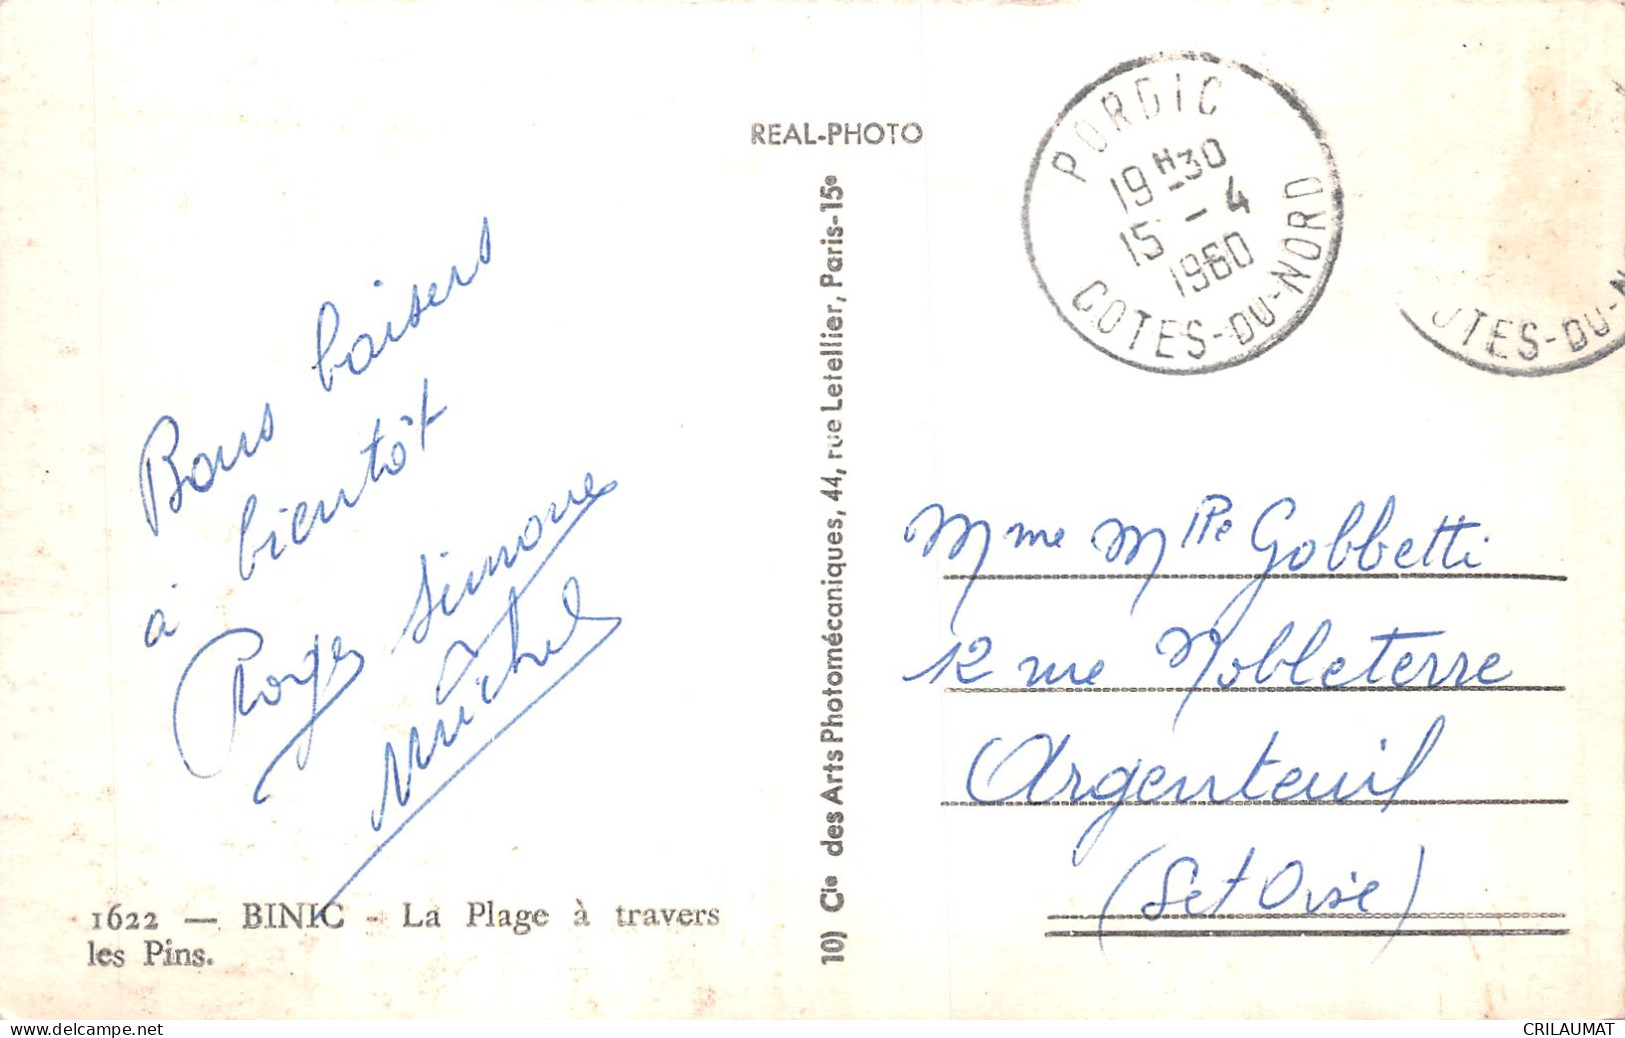 Bons baisers
à bientôt
Roger Simone
Michel
1622 — BINIC - La Plage à travers
les Pins.
REAL-PHOTO
10) Cie des Arts Photomécaniques, 44, rue Letellier, Paris-15e
PORDIC
19H30
15 - 4
1960
COTES-DU-NORD
OTES-DU-N
Mme Mlle Gobbetti
12 rue Nobleterre
Argenteuil
(Set Oise)
delcampe.net
CRILAUMAT